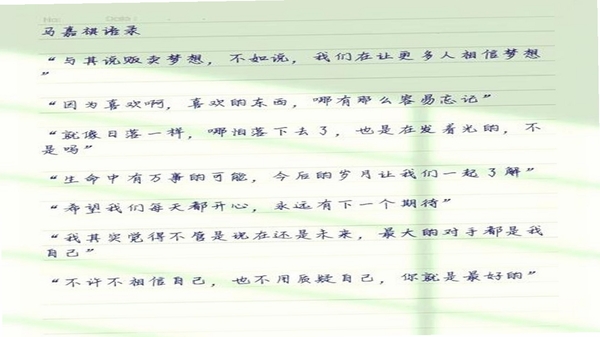 马嘉祺语录
“与其说贩卖梦想，不如说，我们在让更多人相信梦想
”
“因为喜欢啊，喜欢的东西，哪有那么容易忘记”
“就像日落一样，哪怕落下去了，也是在发着光的，不
是吗”
“生命中有万事的可能，今后的岁月让我们一起了解”
“希望我们每天都开心，永远有下一个期待”
“我其实觉得不管是现在还是未来，最大的对手都是我
自己”
“不许不相信自己，也不用质疑自己，你就是最好的”